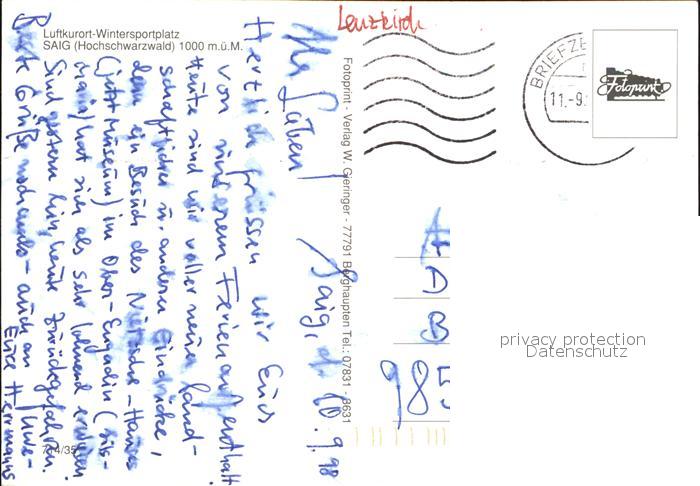 Luftkurort-Wintersportplatz
SAIG (Hochschwarzwald) 1000 m.ü.M.
Lenzkirch
BRIEFZE
11.-9.
Fotoprint
Fotoprint - Verlag W. Gieringer - 77791 Berghaupten Tel.: 07831 - 8631
Saig, 10.9.98
Ihr Lieben!
Herzlich grüssen wir Euch
von unserem Ferienaufenthalt
Heute sind wir voller neuer land-
schaftlicher u. anderer Eindrücke,
denn ein Besuch des Nietzsche-Hauses
(jetzt Museum) im Ober-Engadin (Sils-
Maria) hat sich als sehr lohnend erwiesen
Sind gestern hin, heute zurückgefahren.
Beste Grüße nochmals - auch an Uwe -
Eure Hermanns
A
D
B
985
714/35
privacy protection
Datenschutz